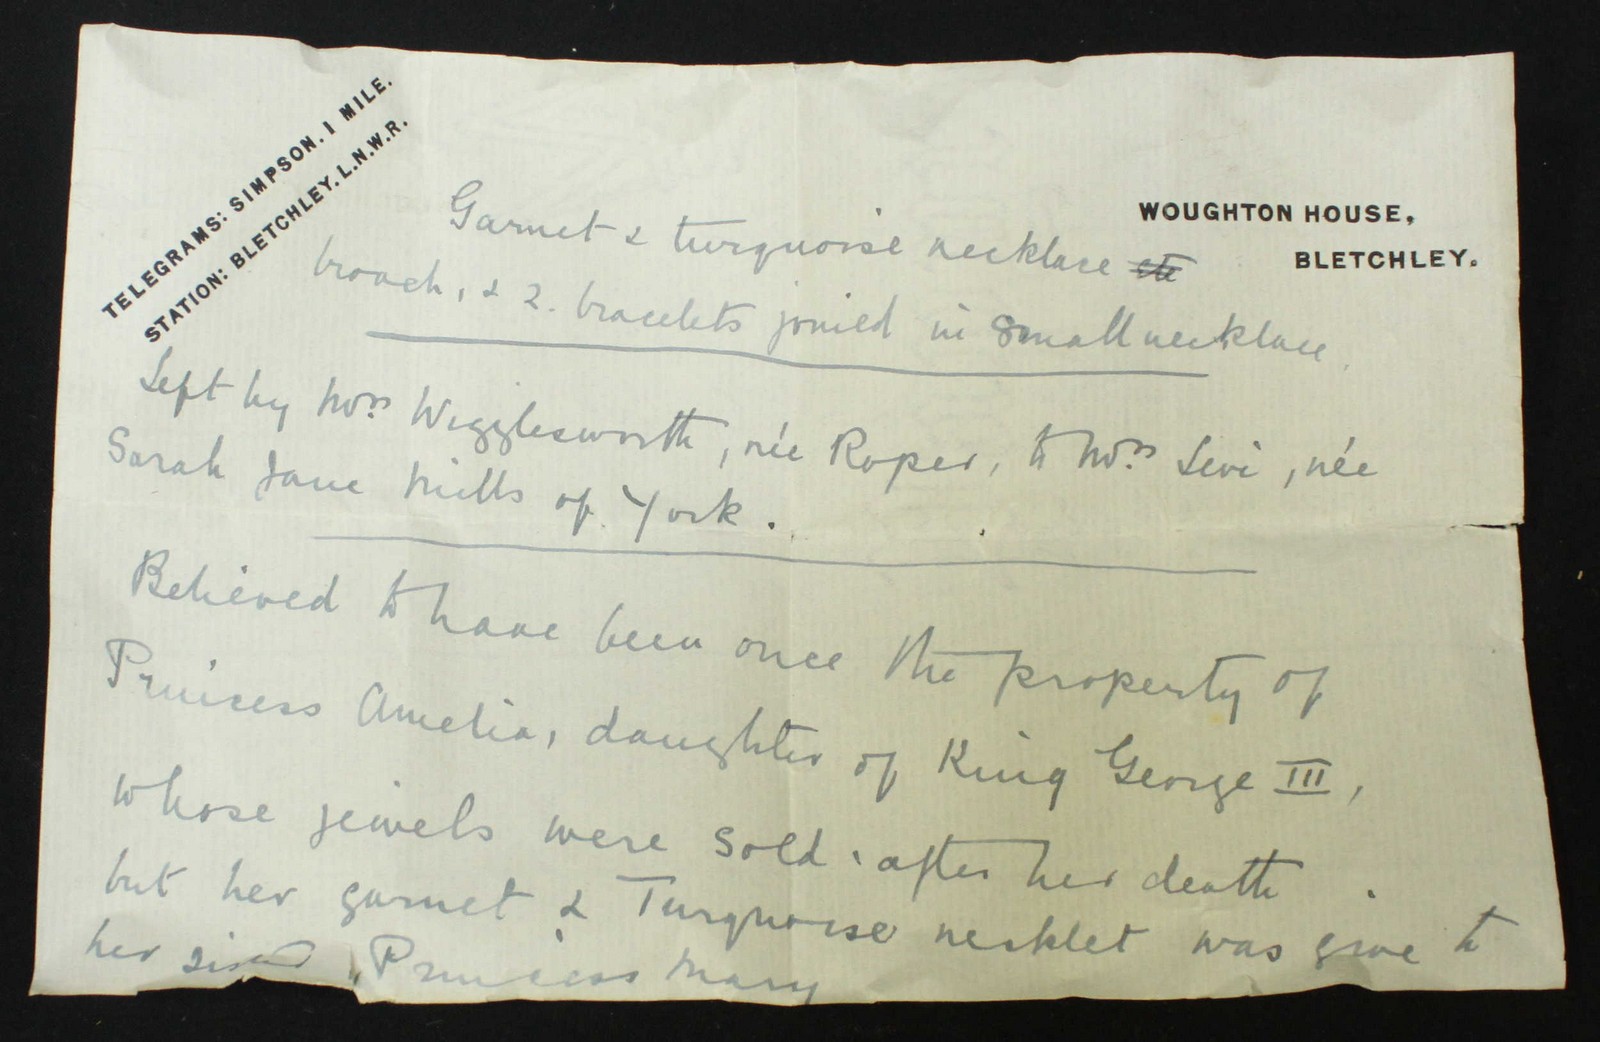 TELEGRAMS: SIMPSON. 1 MILE.
STATION: BLETCHLEY. L.N.W.R.
WOUGHTON HOUSE,
BLETCHLEY.
Garnet & turquoise necklace etc
broach, & 2. bracelets joined in small necklace.
Left by Mrs Wigglesworth, née Roper, to Mrs Levi, née
Sarah Jane Mills of York.
Believed to have been once the property of
Princess Amelia, daughter of King George III,
whose jewels were sold. after her death
but her garnet & Turquoise necklet was give to
her sister, Princess Mary